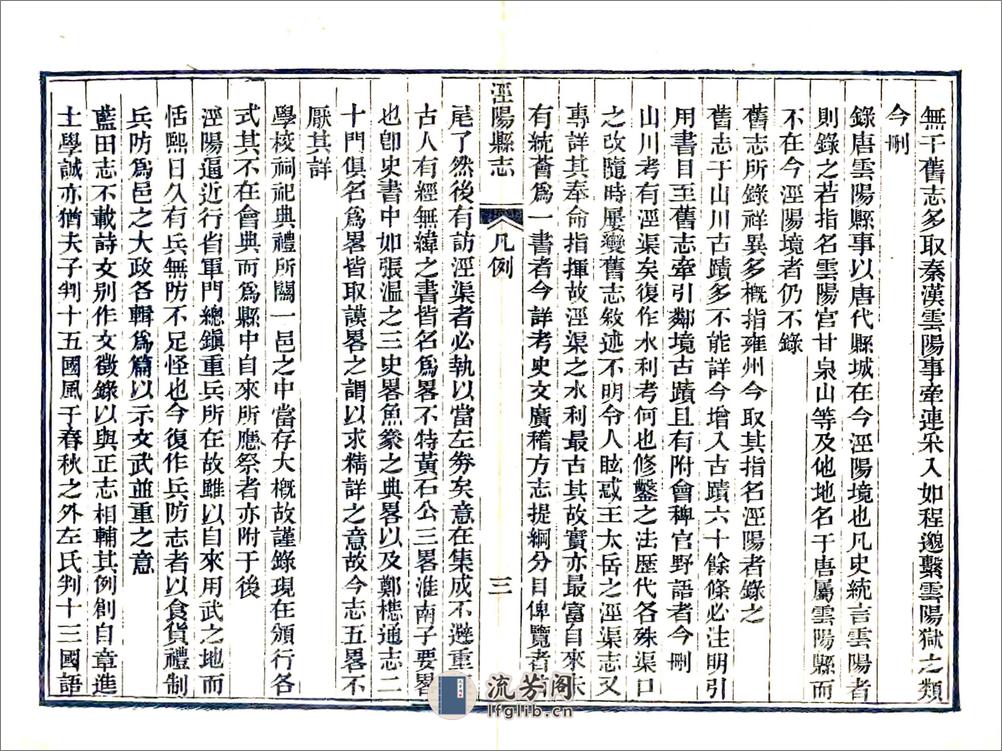 無干舊志多取秦漢雲陽事牽連采入如程邈繫雲陽獄之類
今刪
錄唐雲陽縣事以唐代縣城在今涇陽境也凡史統言雲陽者
則錄之若指名雲陽宮甘泉山等及他地名于唐屬雲陽縣而
不在今涇陽境者仍不錄
舊志所錄祥異多概指雍州今取其指名涇陽者錄之
舊志于山川古蹟多不能詳今增入古蹟六十餘條必注明引
用書目至舊志牽引鄰境古蹟且有附會稗官野語者今刪
山川考有涇渠矣復作水利考何也修鑿之法歷代各殊渠口
之改隨時屢變舊志敘述不明令人眩惑王太岳之涇渠志又
專詳其奉命指揮故涇渠之水利最古其故實亦最富自來未
有統薈爲一書者今詳考史文廣稽方志提綱分目俾覽者首
涇陽縣志
凡例
三
尾了然後有訪涇渠者必執以當左劵矣意在集成不避重
古人有經無緯之書皆名爲畧不特黃石公三畧淮南子要畧
也卽史書中如張溫之三史畧魚豢之典畧以及鄭樵通志二
十門俱名爲畧皆取謨畧之謂以求精詳之意故今志五畧不
厭其詳
學校祠祀典禮所關一邑之中當存大概故謹錄現在頒行各
式其不在會典而爲縣中自來所應祭者亦附于後
涇陽逼近行省軍門總鎭重兵所在故雖以自來用武之地而
恬熙日久有兵無防不足怪也今復作兵防志者以食貨禮制
兵防爲邑之大政各輯爲篇以示文武並重之意
藍田志不載詩文別作文徵錄以與正志相輔其例創自章進
士學誠亦猶夫子判十五國風于春秋之外左氏判十三國語
流芳阁
lfglib.cn